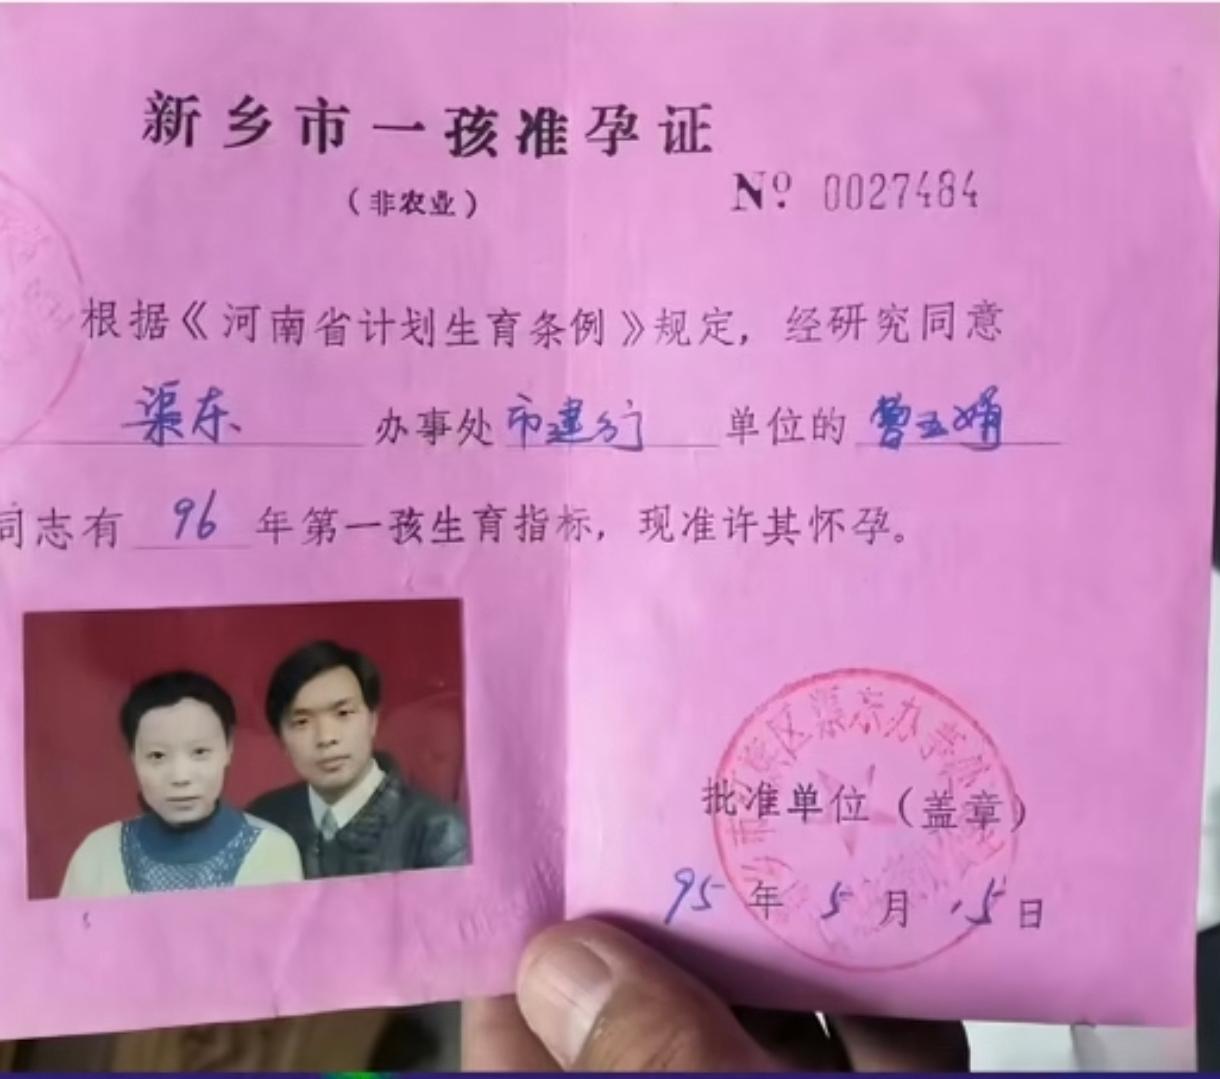 新乡市一孩准孕证
（非农业）
№ 0027484
根据《河南省计划生育条例》规定，经研究同意
渠东 办事处 市建行 单位的 曹玉娟
同志有 96 年第一孩生育指标，现准许其怀孕。
区渠东办事处
批准单位（盖章）
95 年 5 月 15 日